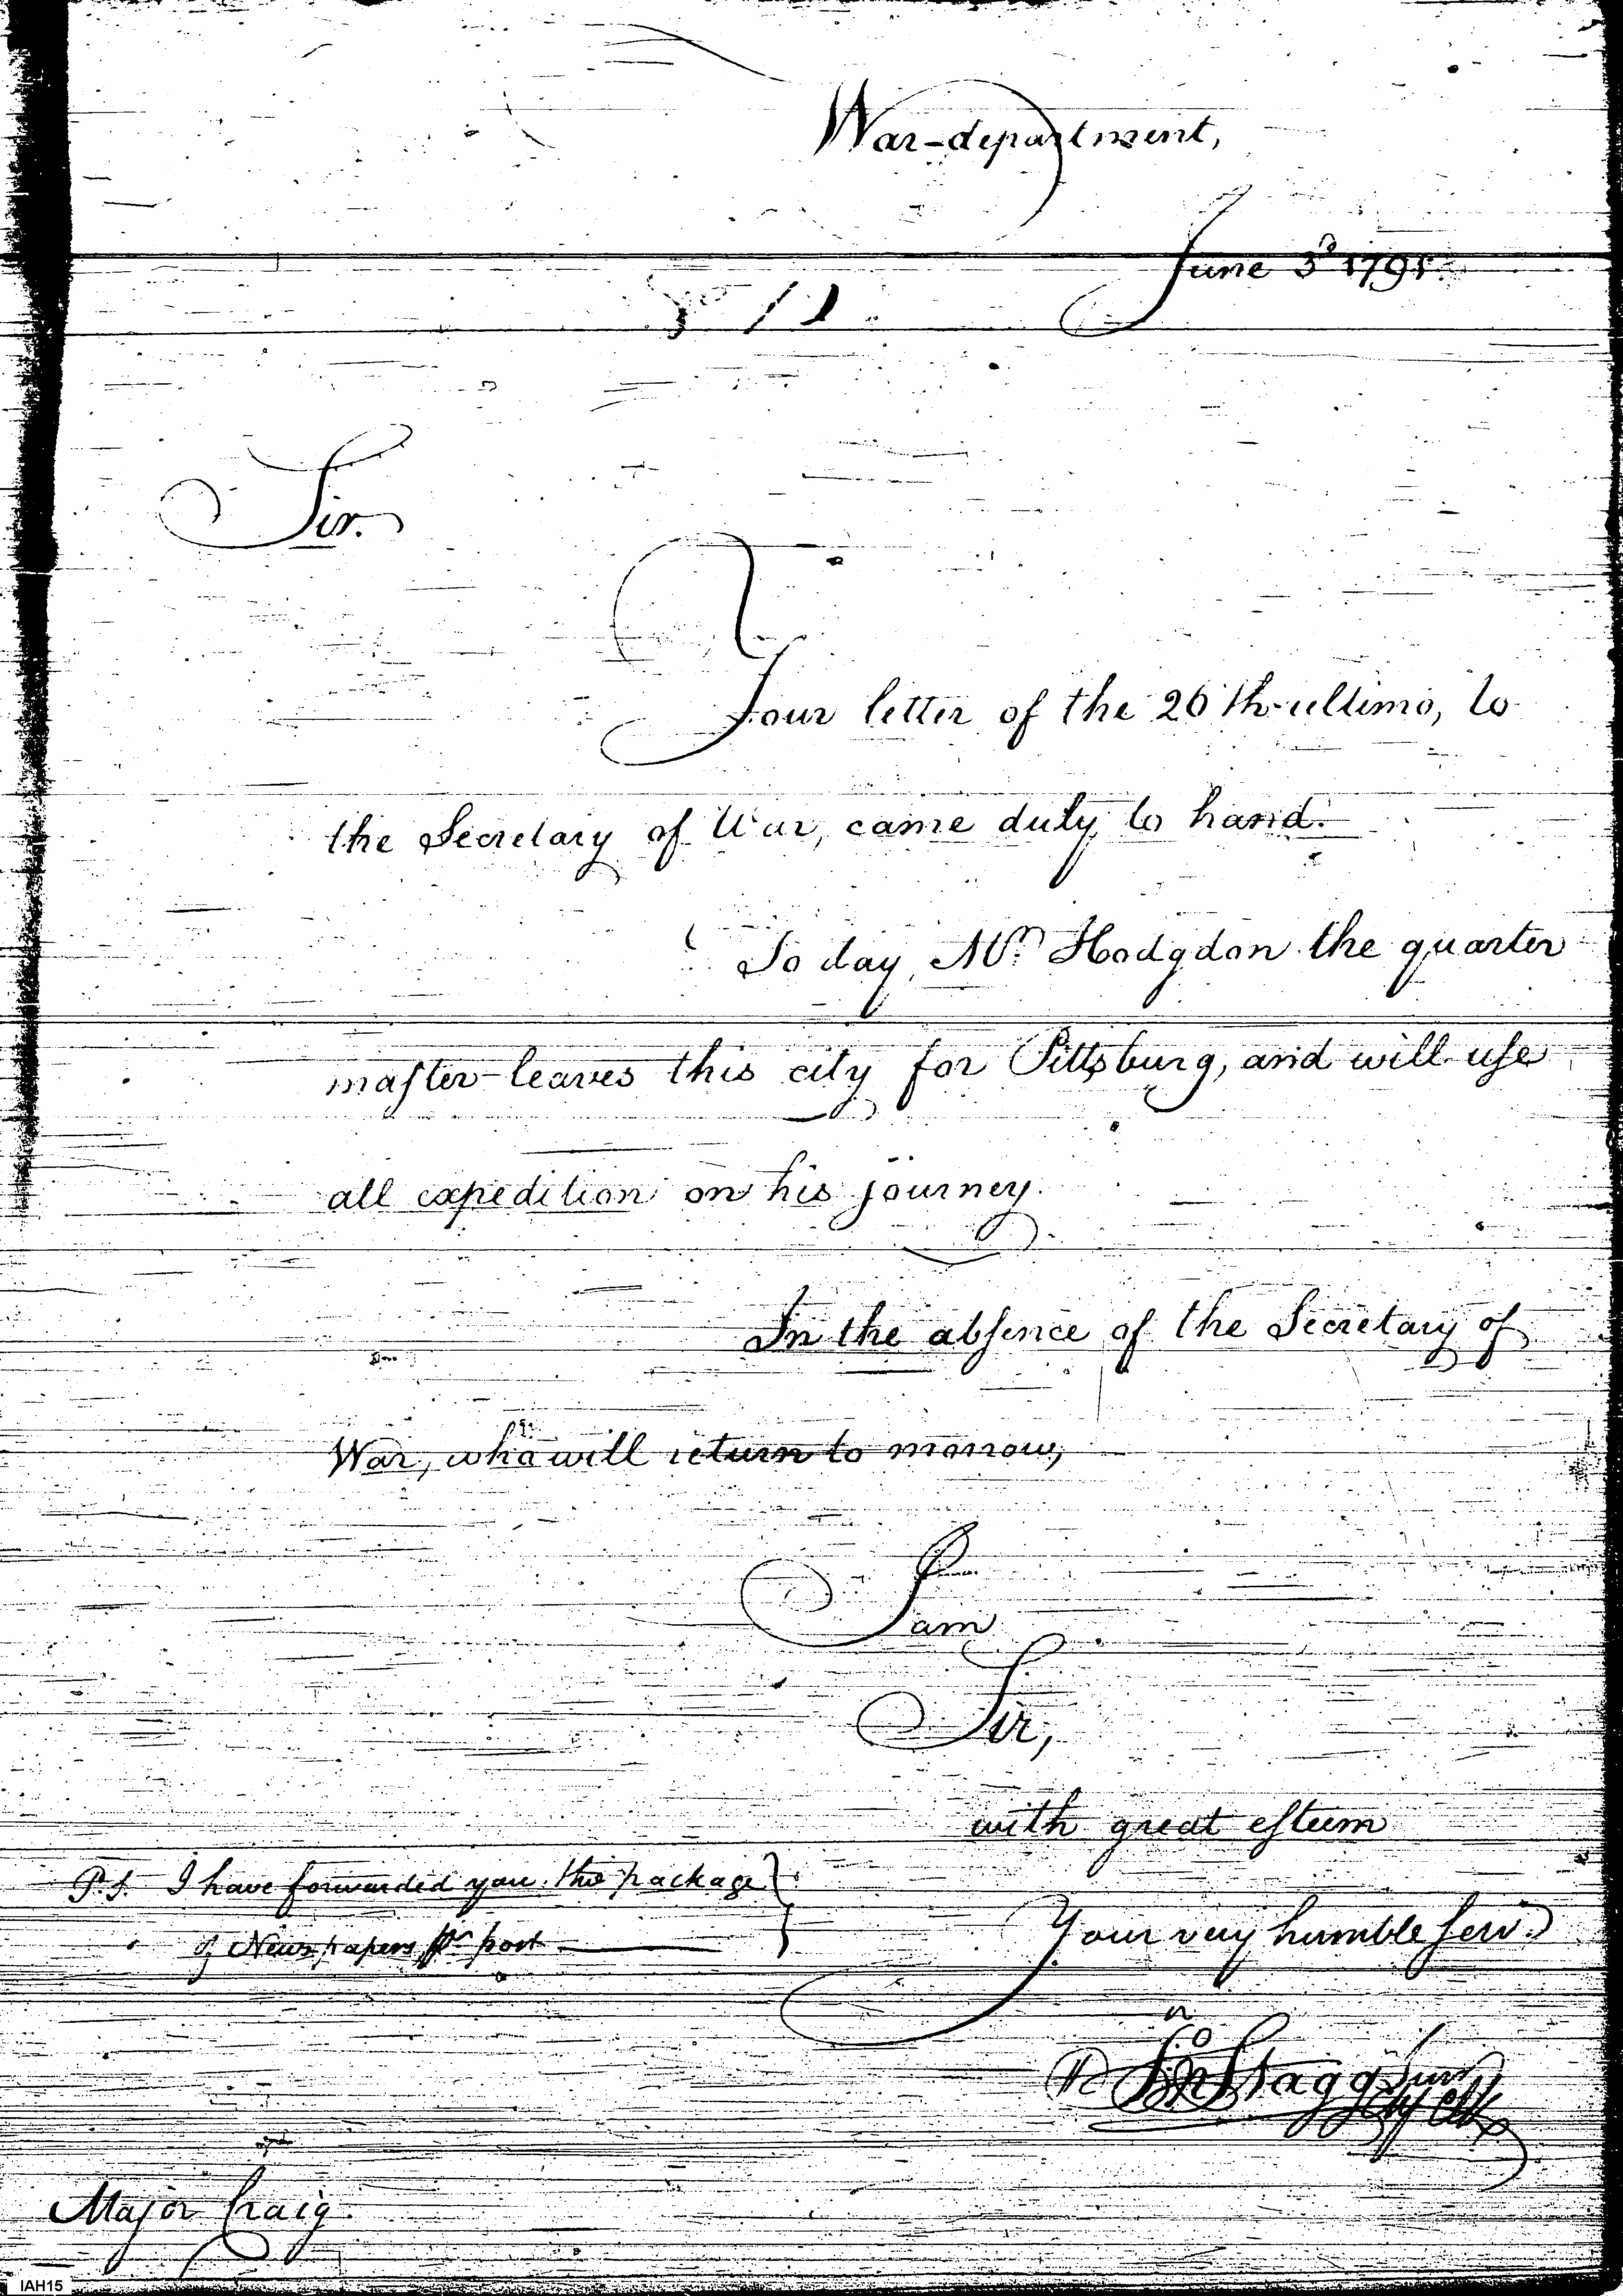 War-department,
June 3d 1791.
Sir.
Your letter of the 26th ultimo, to
the Secretary of War, came duly to hand.
To day, Mr. Hodgdon the quarter
master leaves this city for Pittsburg, and will use
all expedition on his journey.
In the absence of the Secretary of
War, who will return to morrow,
I am
Sir,
with great esteem
P.S. I have forwarded you the package
of News papers pr post
Your very humble Serv.
Jno Stagg Junr
Chf Clk
Major Craig.
IAH15